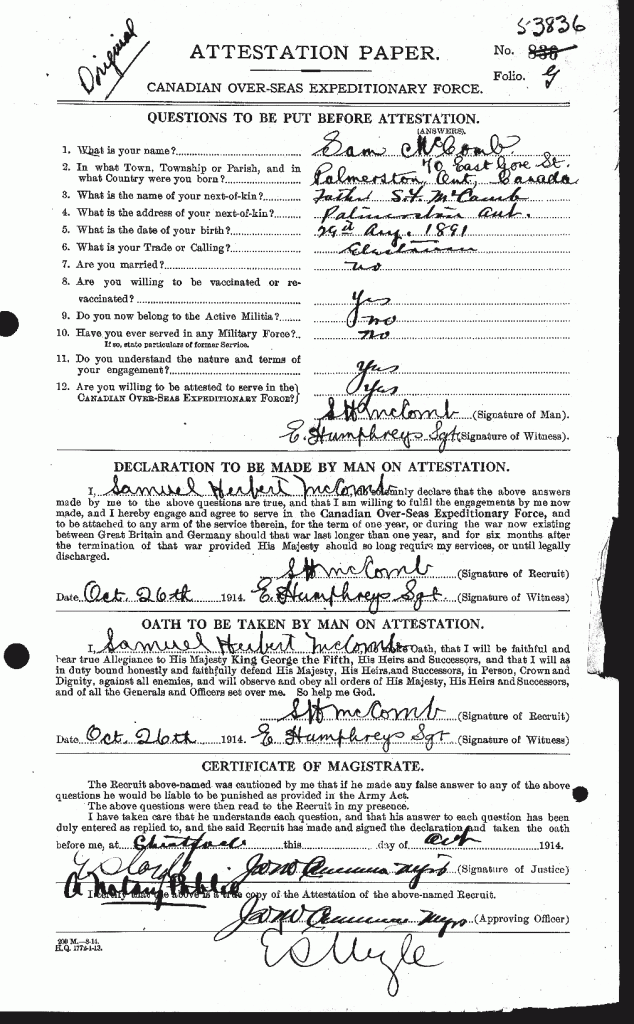 Original
53836
ATTESTATION PAPER.
No. 836
Folio. G
CANADIAN OVER-SEAS EXPEDITIONARY FORCE.
QUESTIONS TO BE PUT BEFORE ATTESTATION.
(ANSWERS).
1. What is your name? Sam McComb
2. In what Town, Township or Parish, and in what Country were you born? 70 East Gore St. Palmerston, Ont, Canada
3. What is the name of your next-of-kin? Father S.H. McComb
4. What is the address of your next-of-kin? Palmerston Ont.
5. What is the date of your birth? 29th Aug. 1891
6. What is your Trade or Calling?
7. Are you married? no
8. Are you willing to be vaccinated or re-
vaccinated? Yes
9. Do you now belong to the Active Militia? no
10. Have you ever served in any Military Force? no
If so, state particulars of former Service.
11. Do you understand the nature and terms of
your engagement? Yes
12. Are you willing to be attested to serve in the
CANADIAN OVER-SEAS EXPEDITIONARY FORCE? Yes
S H McComb (Signature of Man).
E. Humphreys Sgt (Signature of Witness).
DECLARATION TO BE MADE BY MAN ON ATTESTATION.
I, Samuel Herbert McComb, do solemnly declare that the above answers
made by me to the above questions are true, and that I am willing to fulfil the engagements by me now
made, and I hereby engage and agree to serve in the Canadian Over-Seas Expeditionary Force, and
to be attached to any arm of the service therein, for the term of one year, or during the war now existing
between Great Britain and Germany should that war last longer than one year, and for six months after
the termination of that war provided His Majesty should so long require my services, or until legally
discharged.
S H McComb (Signature of Recruit)
Date Oct. 26th 1914. E. Humphreys Sgt (Signature of Witness)
OATH TO BE TAKEN BY MAN ON ATTESTATION.
I, Samuel Herbert McComb, do make Oath, that I will be faithful and
bear true Allegiance to His Majesty King George the Fifth, His Heirs and Successors, and that I will as
in duty bound honestly and faithfully defend His Majesty, His Heirs and Successors, in Person, Crown and
Dignity, against all enemies, and will observe and obey all orders of His Majesty, His Heirs and Successors,
and of all the Generals and Officers set over me. So help me God.
S H McComb (Signature of Recruit)
Date Oct. 26th 1914. E Humphreys Sgt (Signature of Witness)
CERTIFICATE OF MAGISTRATE.
The Recruit above-named was cautioned by me that if he made any false answer to any of the above
questions he would be liable to be punished as provided in the Army Act.
The above questions were then read to the Recruit in my presence.
I have taken care that he understands each question, and that his answer to each question has been
duly entered as replied to, and the said Recruit has made and signed the declaration and taken the oath
before me, at this day of Oct 1914.
(Signature of Justice)
A Notary Public
I certify that the above is a true copy of the Attestation of the above-named Recruit.
(Approving Officer)
200 M.—8-14.
H.Q. 1772-1-13.